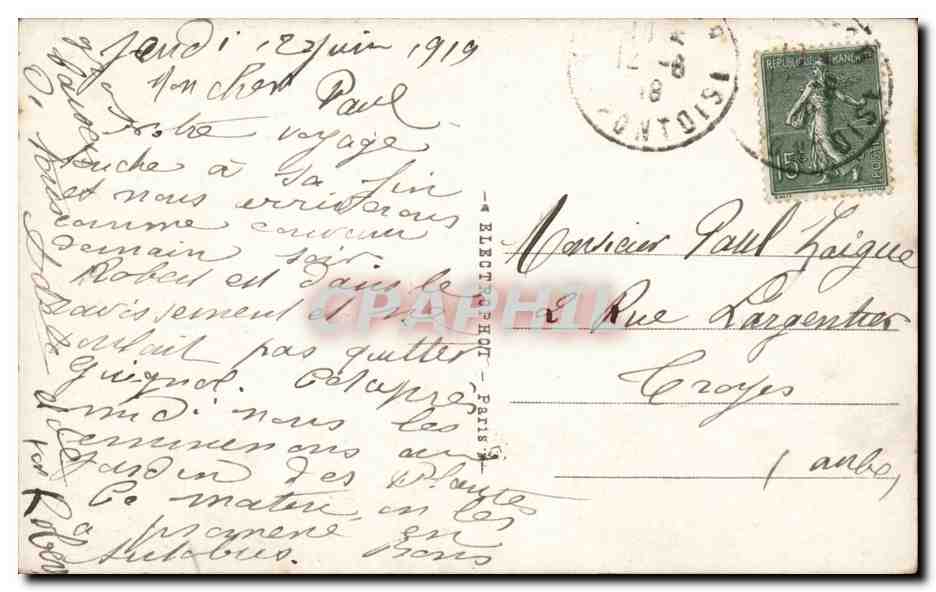 Jeudi 12 juin 1919
Mon cher Paul
Notre voyage
touche à sa fin
et nous arriverons
comme convenu
demain soir.
Robert est dans le
ravissement et ne
voulait pas quitter
Guignol. Cet après
midi nous les
emmenons au
Jardin des Plantes
Ce matin on les
a promené en
Autobus. Bons
ELECTROPHOT - Paris
PONTOISE
REPUBLIQUE FRANCAISE
15c
POSTES
Monsieur Paul
2 Rue Largentier
Troyes
(aube)
CPARHI